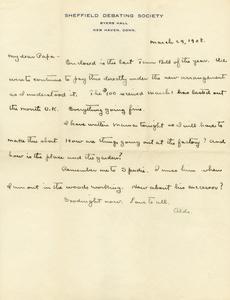 SHEFFIELD DEBATING SOCIETY
BYERS HALL
NEW HAVEN, CONN.
March 29, 1908.
My dear Papa-
Enclosed is the last Term Bill of the year. We
were to continue to pay this directly under the new arrangement
as I understood it. The $100 received March 1 has lasted out
the month O.K. Everything going fine.
I have written Mama tonight so I will have to
make this short. How are things going out at the factory? And
how is the place and the garden?
Remember me to Spadie. I miss him when
I'm out in the woods working. How about his successor?
Goodnight now. Love to all.
Aldo.